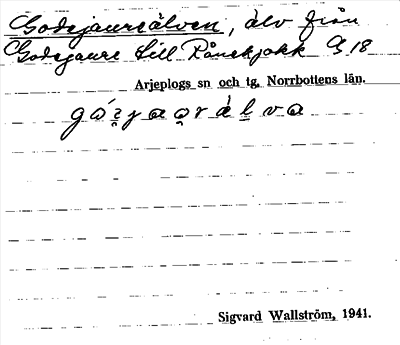 Godejaureälven, älv från
Godejaure till Rånekjokk G 18
Arjeplogs sn och tg, Norrbottens län.
Sigvard Wallström, 1941.